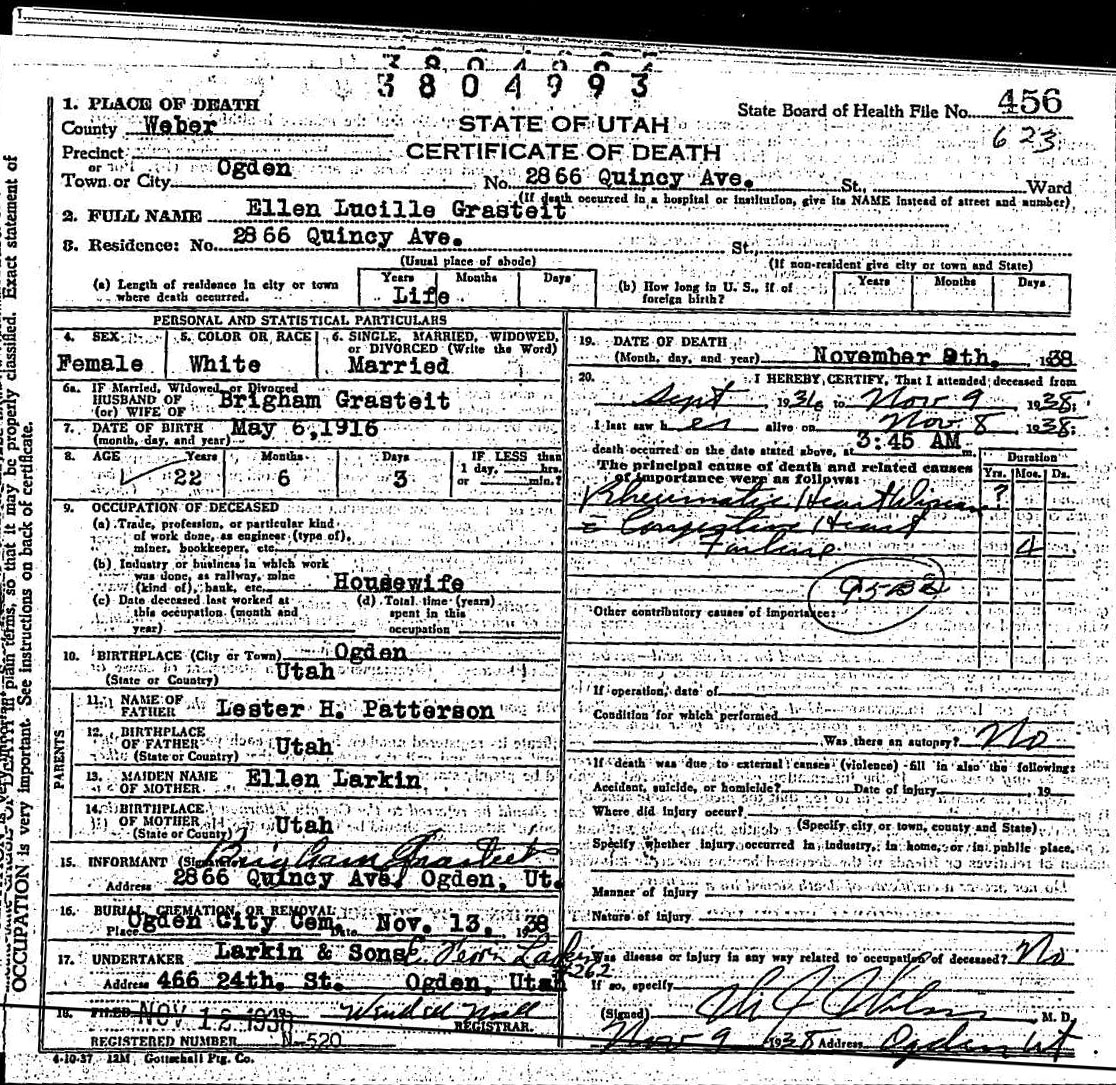 3804993
3804993
1. PLACE OF DEATH
State Board of Health File No. 456
County Weber
STATE OF UTAH
623
Precinct
CERTIFICATE OF DEATH
or
Town or City Ogden No. 2866 Quincy Ave. St., Ward
(If death occurred in a hospital or institution, give its NAME instead of street and number)
2. FULL NAME Ellen Lucille Grasteit
3. Residence: No. 2866 Quincy Ave. St.
(Usual place of abode) (If non-resident give city or town and State)
(a) Length of residence in city or town where death occurred. Years Months Days
Life
(b) How long in U. S., if of foreign birth? Years Months Days
PERSONAL AND STATISTICAL PARTICULARS
4. SEX 5. COLOR OR RACE 6. SINGLE, MARRIED, WIDOWED, or DIVORCED (Write the Word)
Female White Married
6a. IF Married, Widowed, or Divorced
HUSBAND OF
(or) WIFE OF Brigham Grasteit
7. DATE OF BIRTH May 6,1916
(month, day, and year)
8. AGE Years Months Days IF LESS than
1 day, hrs.
22 6 3 or min.?
9. OCCUPATION OF DECEASED
(a) Trade, profession, or particular kind
of work done, as engineer (type of),
miner, bookkeeper, etc.
(b) Industry or business in which work
was done, as railway, mine
(kind of), bank, etc. Housewife
(c) Date deceased last worked at
this occupation (month and
year)
(d) Total time (years)
spent in this
occupation
10. BIRTHPLACE (City or Town) Ogden
(State or Country) Utah
PARENTS
11. NAME OF
FATHER Lester H. Patterson
12. BIRTHPLACE
OF FATHER Utah
(State or Country)
13. MAIDEN NAME
OF MOTHER Ellen Larkin
14. BIRTHPLACE
OF MOTHER Utah
(State or County)
15. INFORMANT Brigham Grasteit
Address 2866 Quincy Ave. Ogden, Ut.
16. BURIAL, CREMATION, OR REMOVAL
Place Ogden City Cem. Date Nov. 13. 1938
17. UNDERTAKER Larkin & Sons
Address 466 24th. St. Ogden, Utah
18. FILED NOV 12 1938
REGISTRAR.
REGISTERED NUMBER N-520
4-10-37 12M Gottschall Ptg. Co.
19. DATE OF DEATH
(Month, day, and year) November 9th. 1938
20. I HEREBY CERTIFY, That I attended deceased from
Sept 1936 to Nov 9 1938
I last saw her alive on Nov 8 1938
death occurred on the date stated above, at 3:45 AM m.
The principal cause of death and related causes
of importance were as follows:
Duration
Yrs. Mos. Ds.
Rheumatic Heart Disease ?
c Congestive Heart
Failure 4
Other contributory causes of importance:
If operation, date of
Condition for which performed
Was there an autopsy? No
If death was due to external causes (violence) fill in also the following:
Accident, suicide, or homicide? Date of injury 19
Where did injury occur?
(Specify city or town, county and State)
Specify whether injury occurred in industry, in home, or in public place.
Manner of injury
Nature of injury
Was disease or injury in any way related to occupation of deceased? No
If so, specify
(Signed) M. D.
Nov 9 1938 Address Ogden Ut
OCCUPATION is very important. See instructions on back of certificate.
plain terms, so that it may be properly classified. Exact statement of